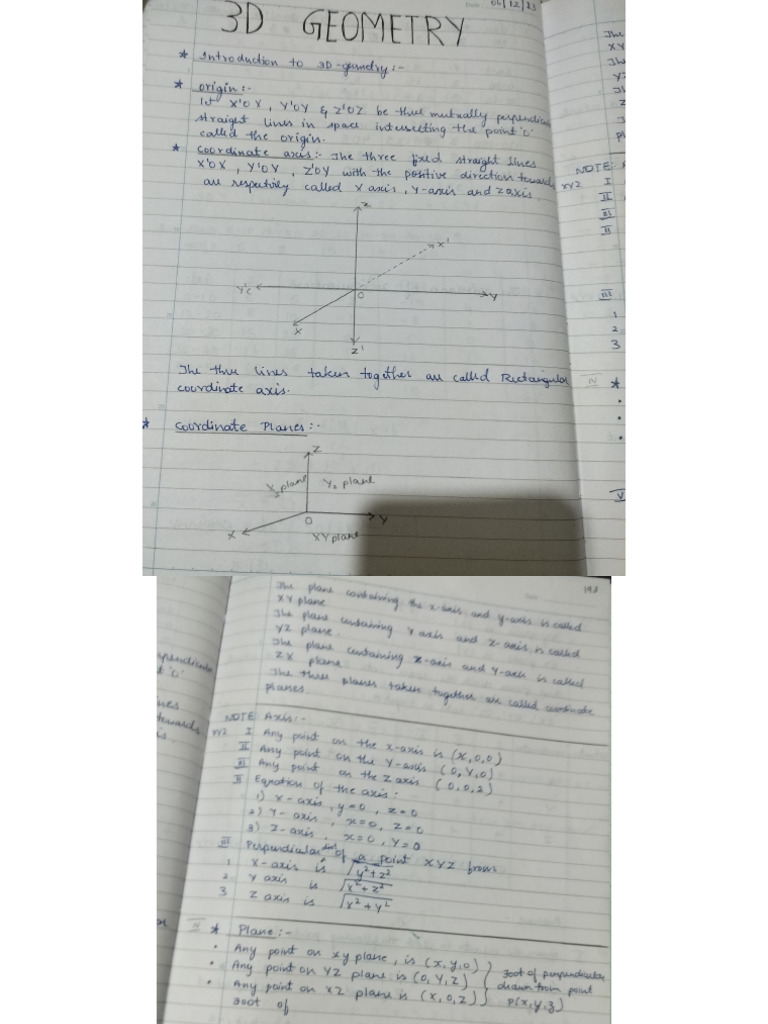 04/12/23
3D GEOMETRY
* Introduction to 3D-geometry:-
* origin:-
let X'OX, Y'OY & Z'OZ be three mutually perpendicu
straight lines in space intersecting the point 'O'
called the origin.
* Coordinate axis:- The three fixed straight lines
X'OX, Y'OY, Z'OY with the positive direction towards
are respectively called X axis, Y-axis and Z axis.
Z
X'
Y'
O
Y
X
Z'
The three lines taken together are called Rectangular
coordinate axis.
* Coordinate Planes:-
Z
YZ plane
O
Y
X
XY plane
The
XY
YZ
Z
NOTE:
XYZ I
II
III
II
III
1
2
3
IV *
V
198
The plane containing the x-axis and y-axis is called
XY plane
The plane containing Y axis and z-axis is called
YZ plane.
The plane containing x-axis and y-axis is called
ZX plane
The three planes taken together are called coordinate
planes.
NOTE: Axis:-
XYZ I Any point on the x-axis is (x,0,0)
II Any point on the Y-axis (0,Y,0)
III Any point on the Z axis (0,0,Z)
II Equation of the axis:
1) X-axis, y=0, z=0
2) Y-axis, x=0, z=0
3) Z-axis, x=0, Y=0
III Perpendicular of a point XYZ from
1 X-axis is √y²+z²
2 Y axis is √x²+z²
3 Z axis is √x²+y²
IV * Plane:-
• Any point on xy plane, is (x,y,0)
• Any point on YZ plane is (0,Y,Z)
• Any point on XZ plane is (X,0,Z)
foot of perpendicular
drawn from point
P(x,y,z)
foot of